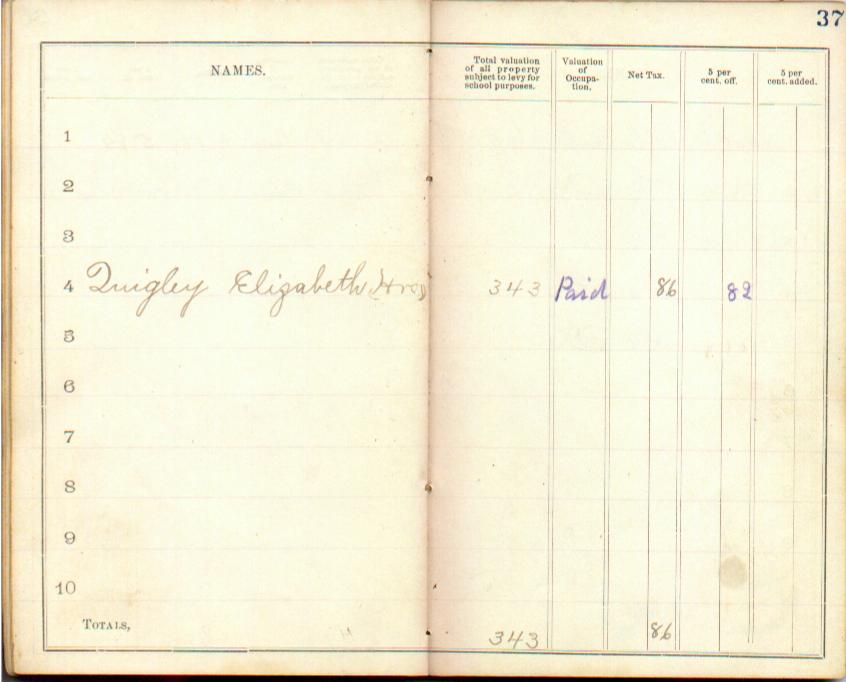 37
NAMES.
Total valuation of all property subject to levy for school purposes.
Valuation of Occupa- tion.
Net Tax.
5 per cent. off.
5 per cent. added.
1
2
3
4 Quigley Elizabeth (Hrs) 343 Paid 86 82
5
6
7
8
9
10
TOTALS, 343 86